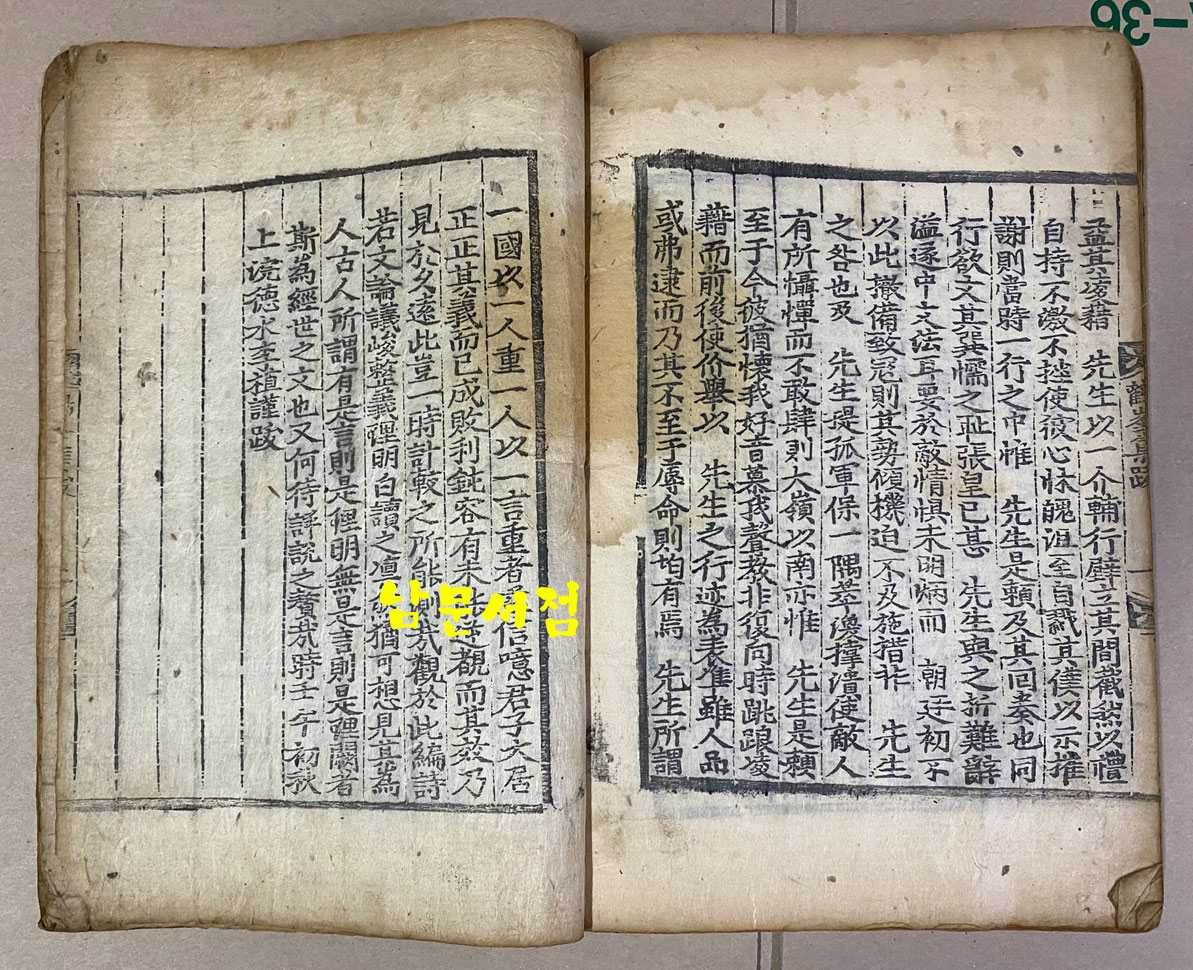 益其凌藉 先生以一介輔行壁立其間巀然以禮
自持不激不挫使彼心怵醜沮至自戮其僕以示摧
謝則當時一行之中惟 先生是賴及其回奏也同
行欲文其巽懦之耻張皇已甚 先生與之折難辭
溢逐中文法耳要於敵情惧未明炳而 朝廷初不
以此撤備致冦則其勢傾機迫不及施措非 先生
之咎也及 先生提孤軍保一隅萃㳷撑潰使敵人
有所懾憚而不敢肆則大嶺以南亦惟 先生是賴
至于今彼猶懷我好音慕我聲教非復向時跳踉凌
藉而前後使价舉以 先生之行迹為表準雖人品
或弗逮而乃其不至于辱命則怕有焉 先生所謂
一國以一人重一人以一言重者 信噫君子大居
正正其義而已成敗利鈍容有未 逆覩而其效乃
見於久遠此豈一時計較之所能測㢤觀於此編詩
若文論議峻整義理明白讀之凜 猶可想見其為
人古人所謂有是言則是理明無是言則是理闕者
斯為經世之文也又何待詳說之贅㢤時壬午初秋
上浣德水李植謹跋
鶴峯集跋
남문서점